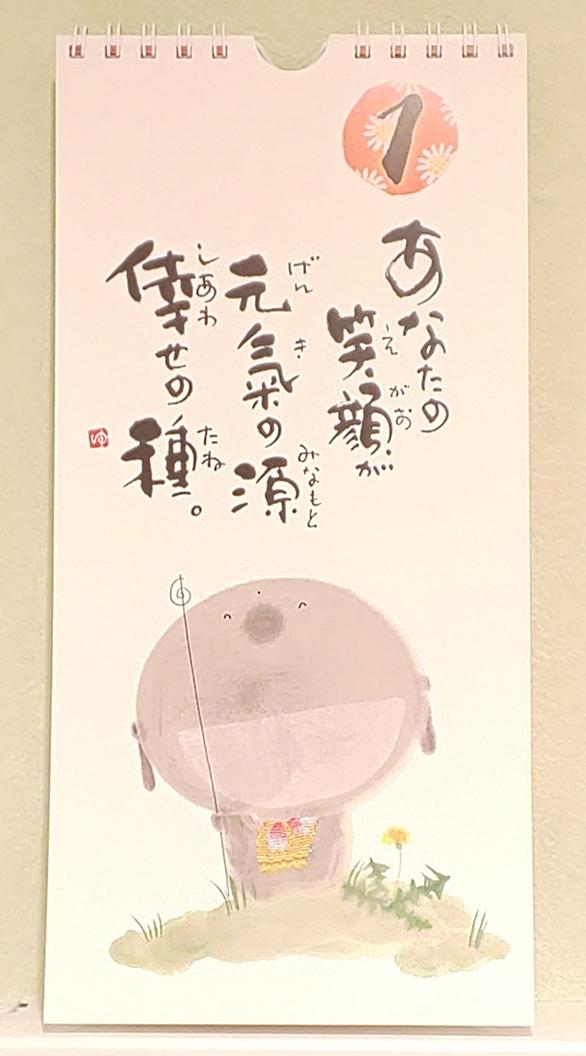 1
あなたの
笑顔が
えがお
元氣の源
げんき
みなもと
倖せの種。
しあわ
たね
ゆ